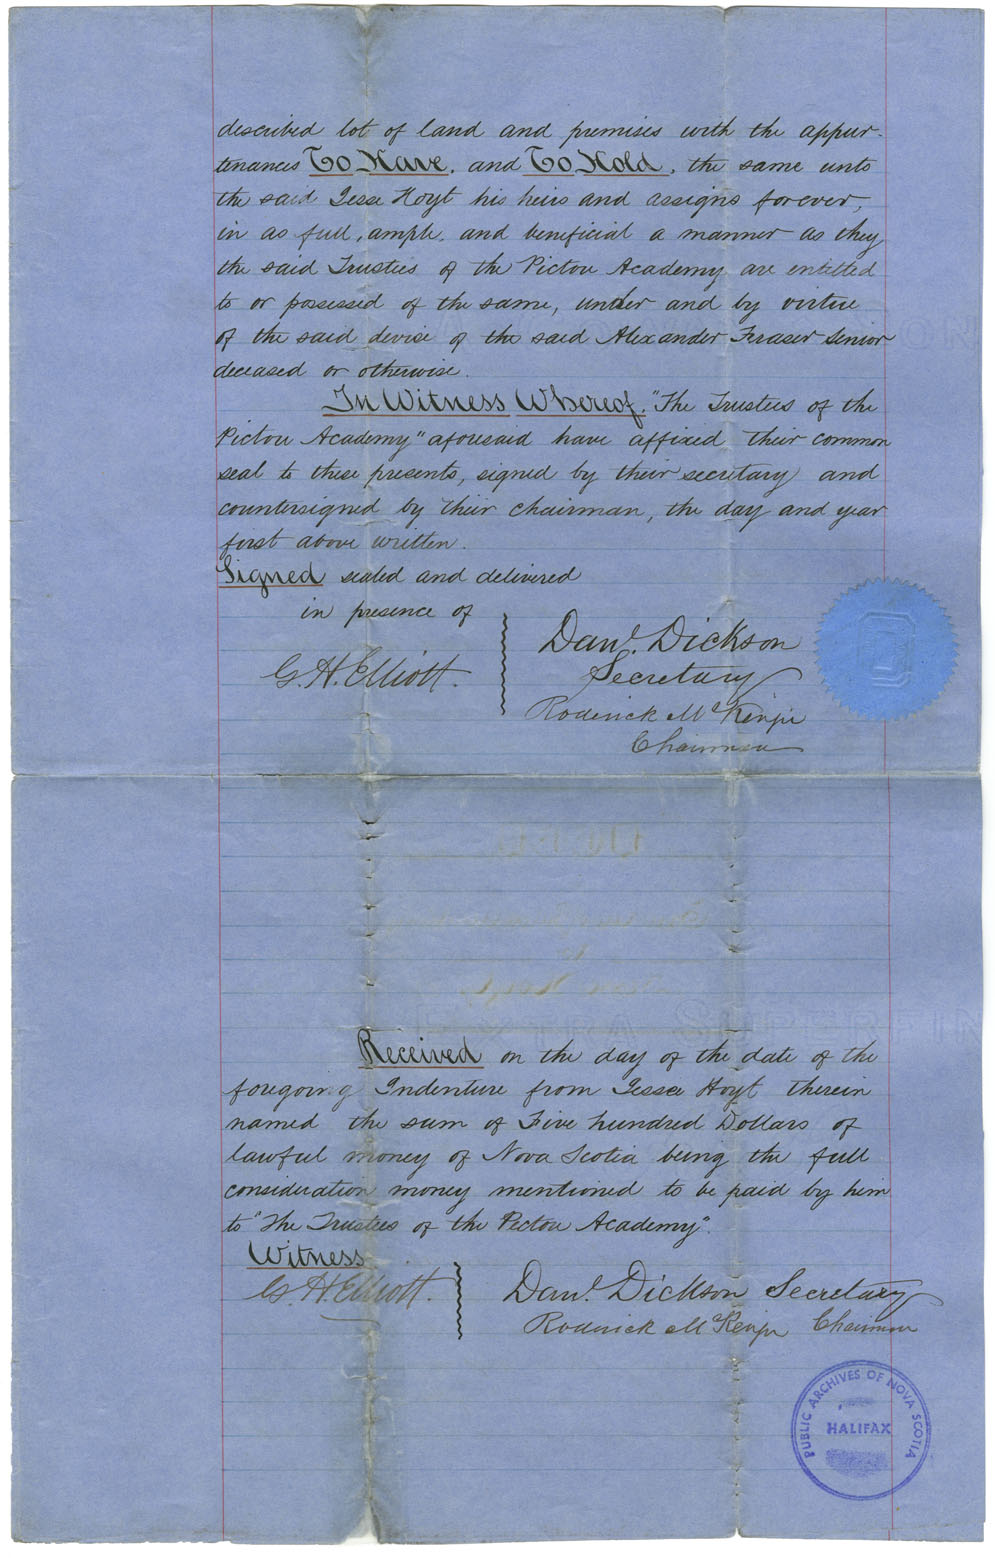 described lot of land and premises with the appur-
tenances To Have, and To Hold, the same unto
the said Jesse Hoyt his heirs and assigns forever,
in as full, ample, and beneficial a manner as they
the said Trustees of the Pictou Academy are entitled
to or possessed of the same, under and by virtue
of the said devise of the said Alexander Fraser Senior
deceased or otherwise.
In Witness Whereof, "The Trustees of the
Pictou Academy" aforesaid have affixed their common
seal to these presents, signed by their secretary and
countersigned by their chairman, the day and year
first above written.
Signed sealed and delivered
in presence of
G. H. Elliott.
Danl. Dickson
Secretary
Roderick McKenzie
Chairman
EXTRA SUPERFIN
Received on the day of the date of the
foregoing Indenture from Jesse Hoyt therein
named the sum of Five hundred Dollars of
lawful money of Nova Scotia being the full
consideration money mentioned to be paid by him
to "The Trustees of the Pictou Academy".
Witness
G. H. Elliott.
Danl. Dickson Secretary
Roderick McKenzie Chairman
PUBLIC ARCHIVES OF NOVA SCOTIA
HALIFAX